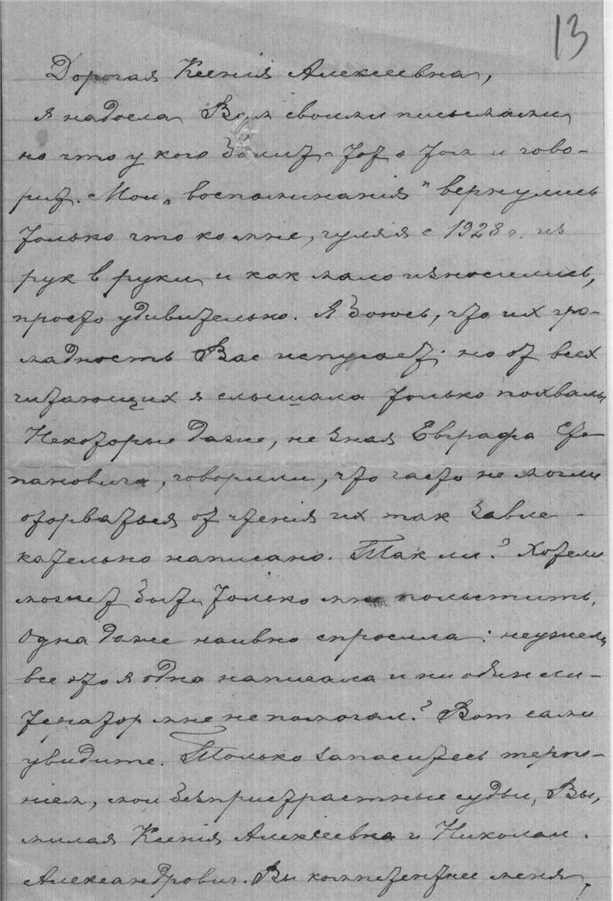 13
Дорогая Ксенія Алексеевна,
я надоела Вам своими письмами,
но что у кого болит – тот о том и гово-
рит. Мои „воспоминанія" вернулись
только что ко мне, гуляя с 1928 г. из
рук в руки и как мало износились,
просто удивительно. Я боюсь, что их гро-
мадность Вас испугает; но от всех
читающих я слышала только похвалы
Некоторые даже, не зная Евграфа Сте-
пановича, говорили, что часто не могли
оторваться от чтенія их так завле-
кательно написано. Так ли? Хотели
может быть только мне польстить.
Одна даже наивно спросила: неужели
все это я одна написала и ни один ли-
тератор мне не помогал? Вот сами
увидите. Только запаситесь терпе-
нием, мои безпристрастные судьи, Вы,
милая Ксенія Алексеевна и Николай
Александрович. Вы компетентнее меня,